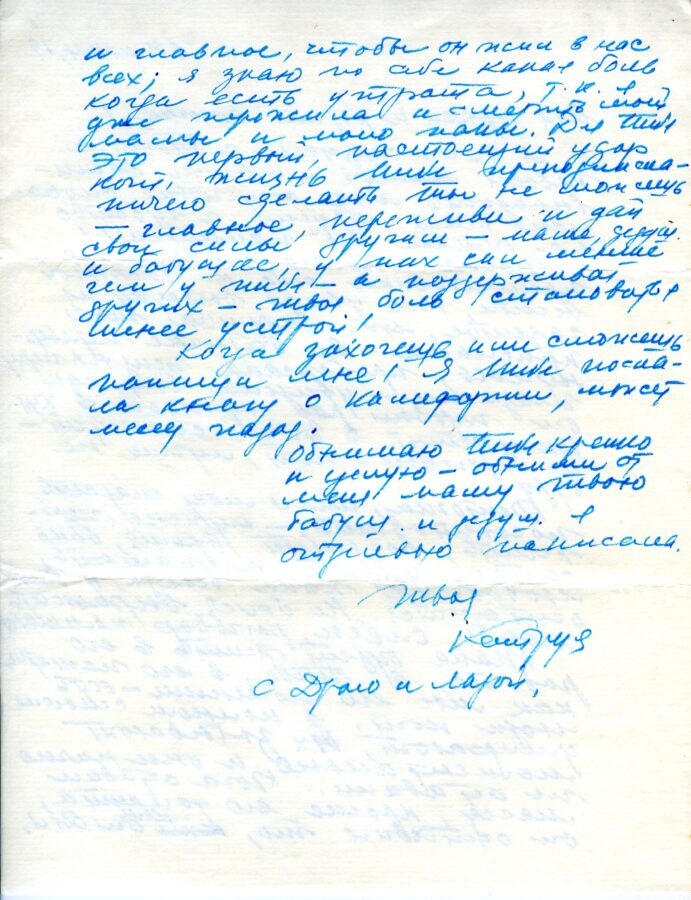 и главное, чтобы он жил в нас
всех; я знаю по себе какая боль
когда есть утрата, т.к. я
уже пережила и смерть моей
мамы и моего папы. Для тебя
это первый, настоящий удар
который жизнь тебе преподнесла-
ничего сделать ты не можешь
– главное, переживи и дай
свои силы другим – маме, дедуш.
и бабушке, у них сил меньше
чем у тебя – а поддерживая
других – твоя боль становится
менее устрой!
Когда захочешь или сможешь
напиши мне! Я тебе посла-
ла книгу о Калифорнии, может
месяц назад.
Обнимаю тебя крепко
и целую – обними от
меня маму твою
бабуш. и дедуш. я
отдельно написала.
Твоя
с Драго и Лазой.